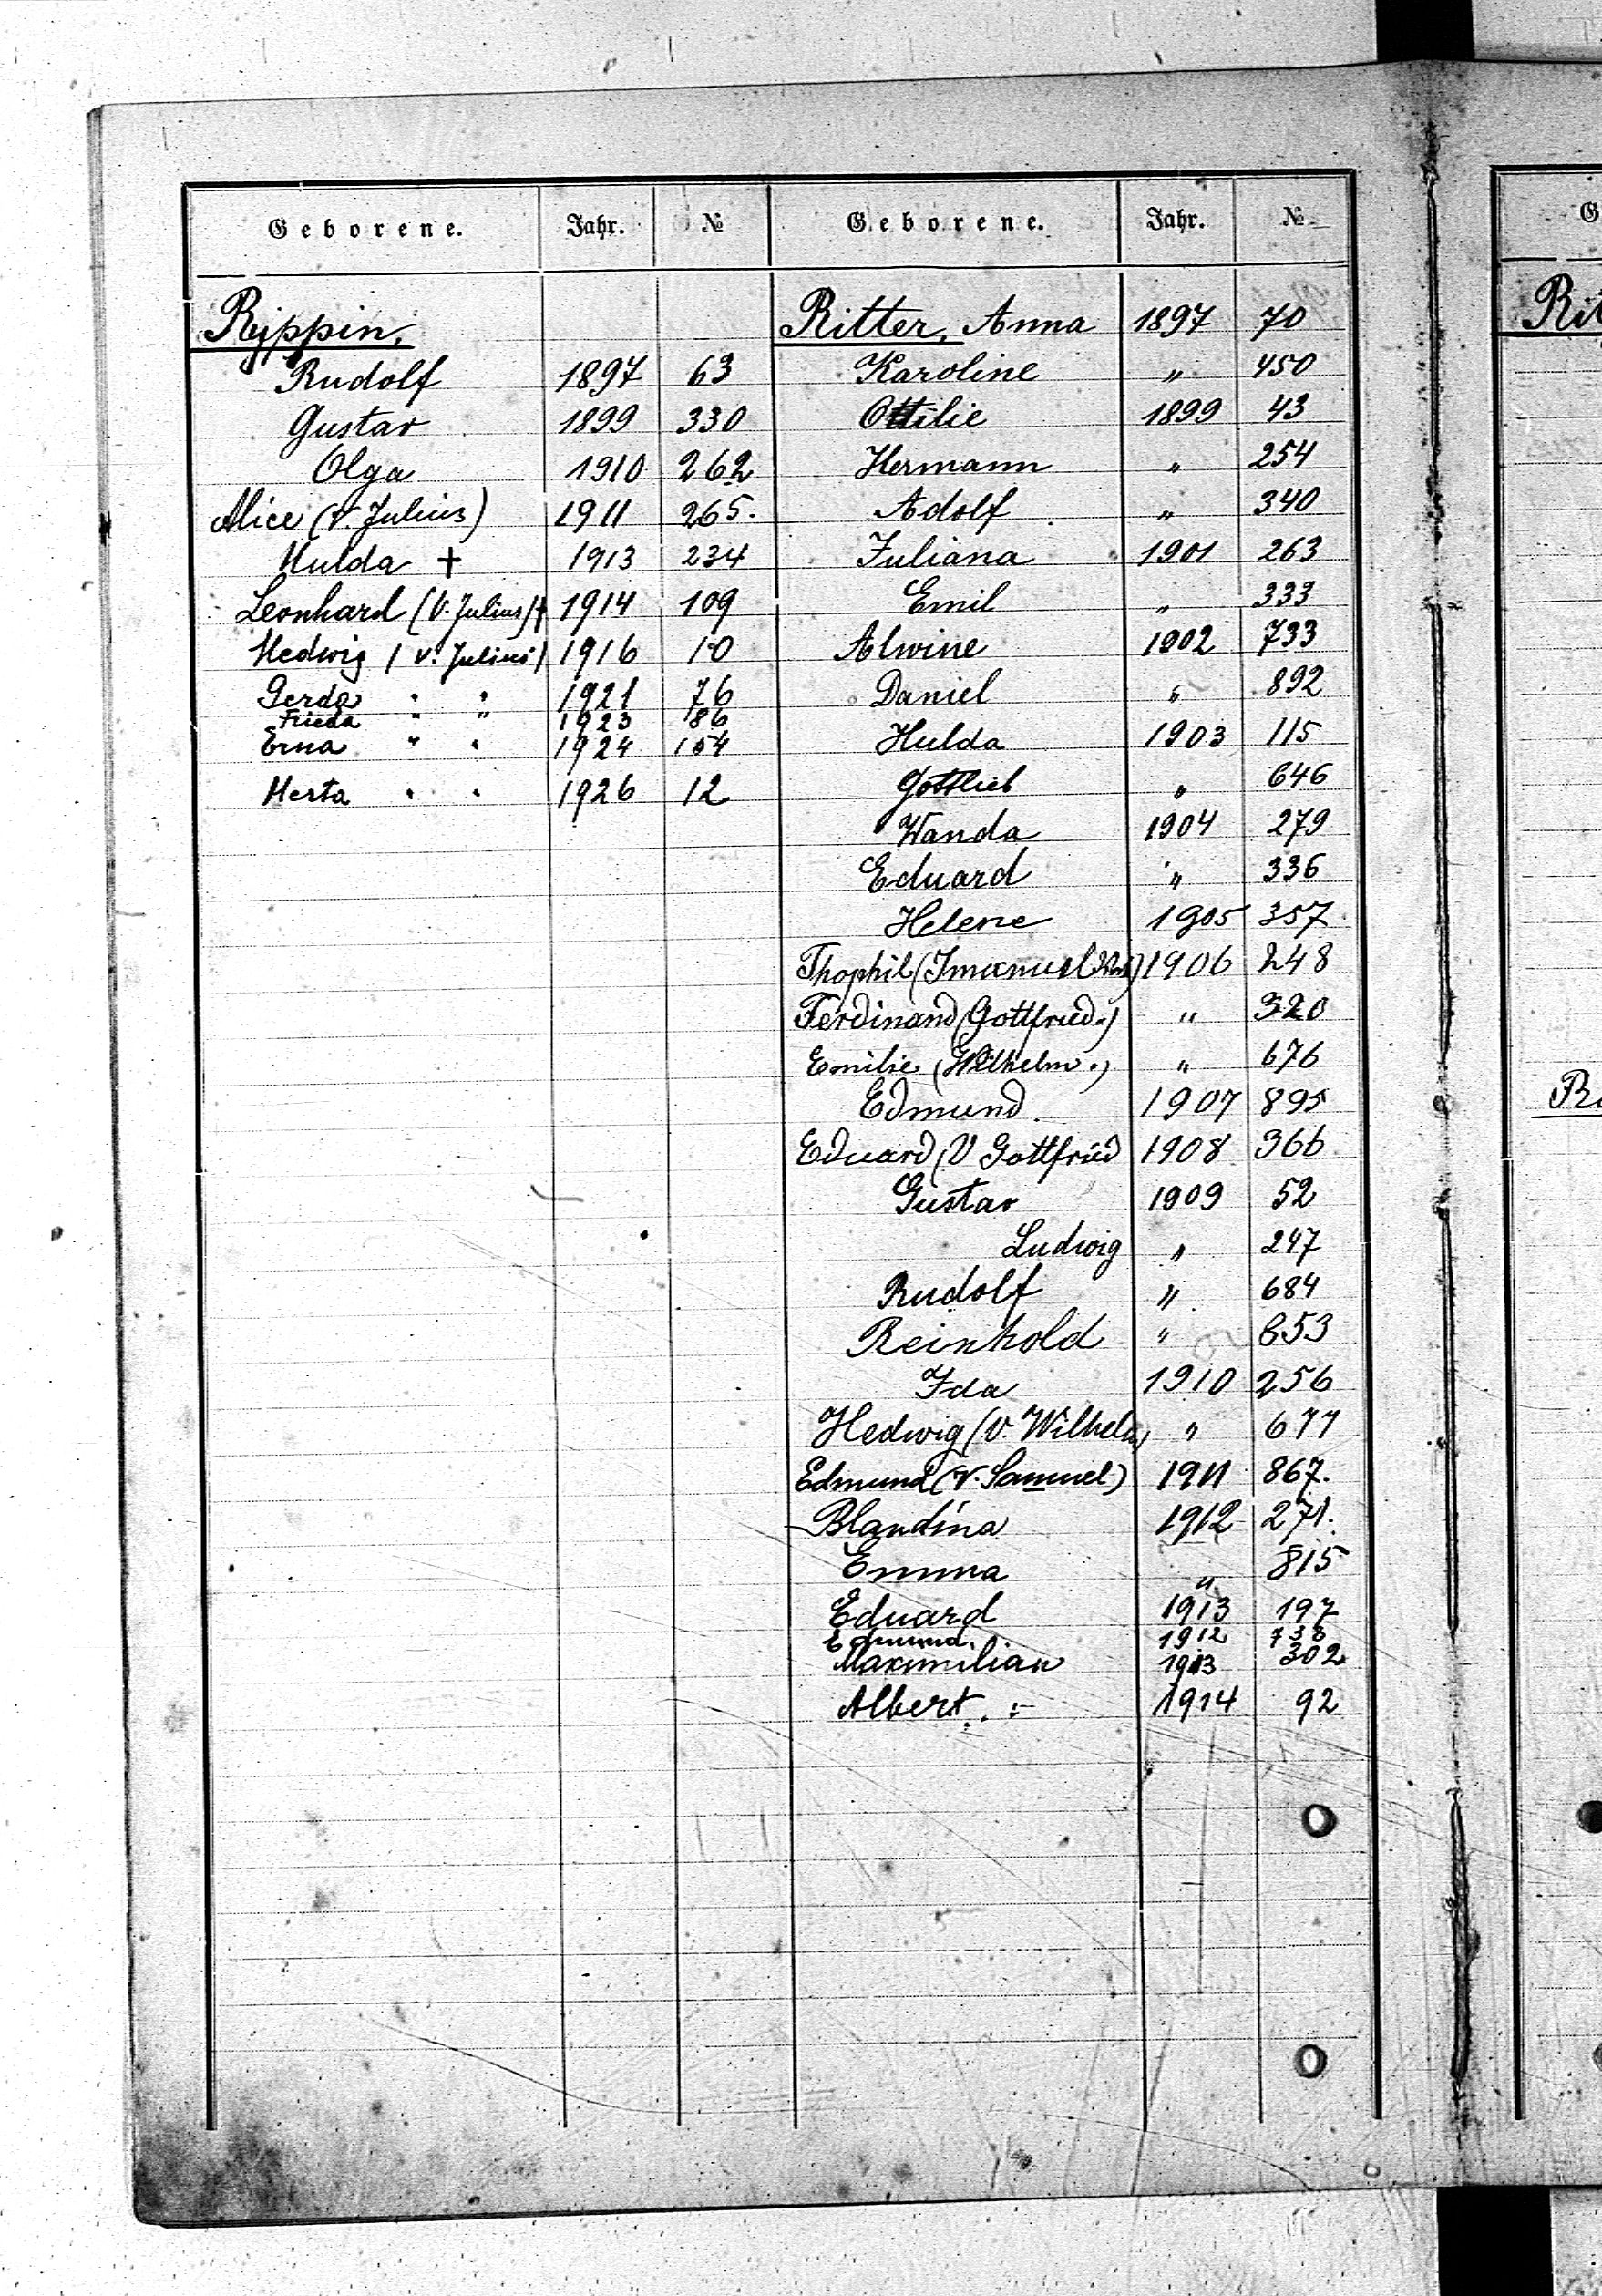 Geborene. Jahr. №
Rippin,
Rudolf 1897 63
Gustav 1899 330
Olga 1910 262
Alice (V. Julius) 1911 265.
Hulda † 1913 234
Leonhard (V. Julius) † 1914 109
Hedwig (V. Julius) 1916 10
Gerda " " 1921 76
Frieda " " 1923 186
Erna " " 1924 154
Herta " " 1926 12
Geborene. Jahr. №
Ritter, Anna 1897 70
Karoline " 450
Ottilie 1899 43
Hermann " 254
Adolf " 340
Juliana 1901 263
Emil " 333
Alwine 1902 733
Daniel " 892
Hulda 1903 115
Gottlieb " 646
Wanda 1904 279
Eduard " 336
Helene 1905 357
Thophil (Imanuel 1906 248
Ferdinand (Gottfried.) " 320
Emilie (Wilhelm.) " 676
Edmund 1907 895
Eduard (V Gottfried 1908 366
Gustav 1909 52
Ludwig " 247
Rudolf " 684
Reinhold " 653
Ida 1910 256
Hedwig (V. Wilhelm) " 677
Edmund (V. Samuel) 1911 867.
Blandina 1912 271.
Emma " 815
Eduard 1913 197
Edmund. 1912 738
Maximilian 1913 302
Albert 1914 92
G
Rit